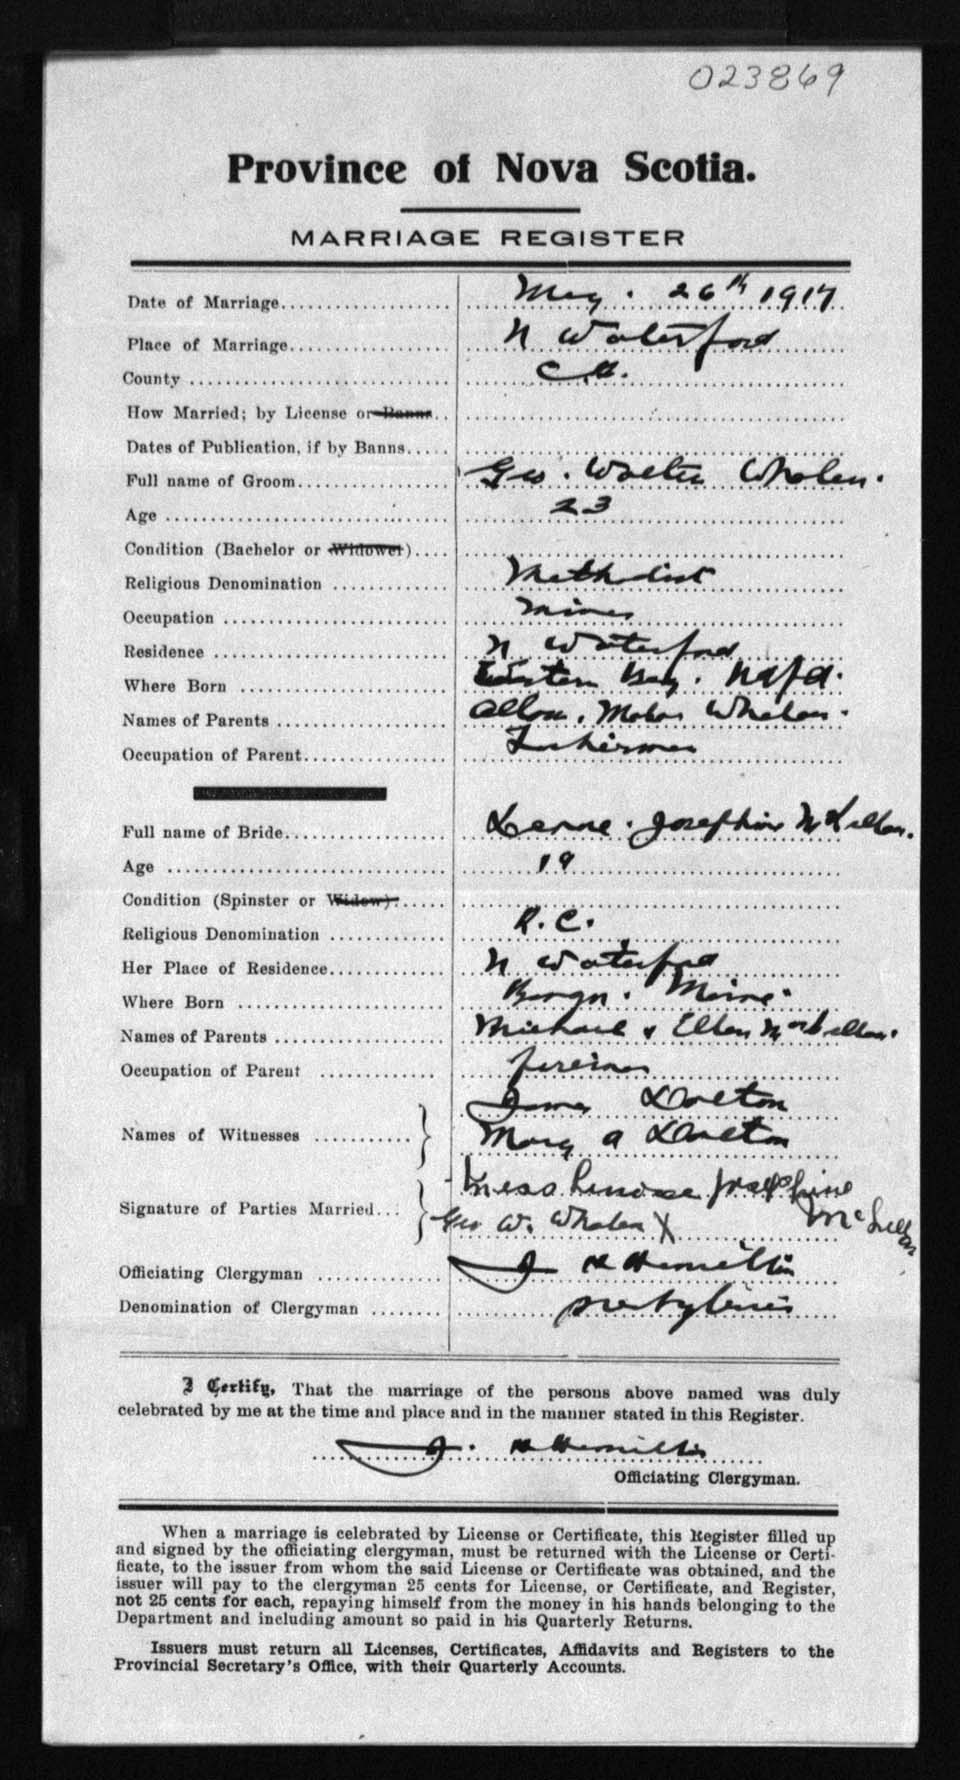 023869
Province of Nova Scotia.
MARRIAGE REGISTER
Date of Marriage May. 26th 1917
Place of Marriage N Waterford
County C.B.
How Married; by License or Banns
Dates of Publication, if by Banns
Full name of Groom Geo. Walter Whalen.
Age 23
Condition (Bachelor or Widower)
Religious Denomination Methodist
Occupation Miner
Residence N Waterford
Where Born Western Bay. Nfld.
Names of Parents Whalen.
Occupation of Parent Fisherman
Full name of Bride Josephine McLellan.
Age 19
Condition (Spinster or Widow)
Religious Denomination R.C.
Her Place of Residence N Waterford
Where Born Maine.
Names of Parents Michael & Ellen McLellan.
Occupation of Parent
James Dalton
Names of Witnesses
Mary A Dalton
Josephine
Signature of Parties Married McLellan
Geo W. Whalen X
Officiating Clergyman J H Hamilton
Denomination of Clergyman Presbyterian
I Certify, That the marriage of the persons above named was duly
celebrated by me at the time and place and in the manner stated in this Register.
J. H Hamilton
Officiating Clergyman.
When a marriage is celebrated by License or Certificate, this Register filled up
and signed by the officiating clergyman, must be returned with the License or Certi-
ficate, to the issuer from whom the said License or Certificate was obtained, and the
issuer will pay to the clergyman 25 cents for License, or Certificate, and Register,
not 25 cents for each, repaying himself from the money in his hands belonging to the
Department and including amount so paid in his Quarterly Returns.
Issuers must return all Licenses, Certificates, Affidavits and Registers to the
Provincial Secretary's Office, with their Quarterly Accounts.